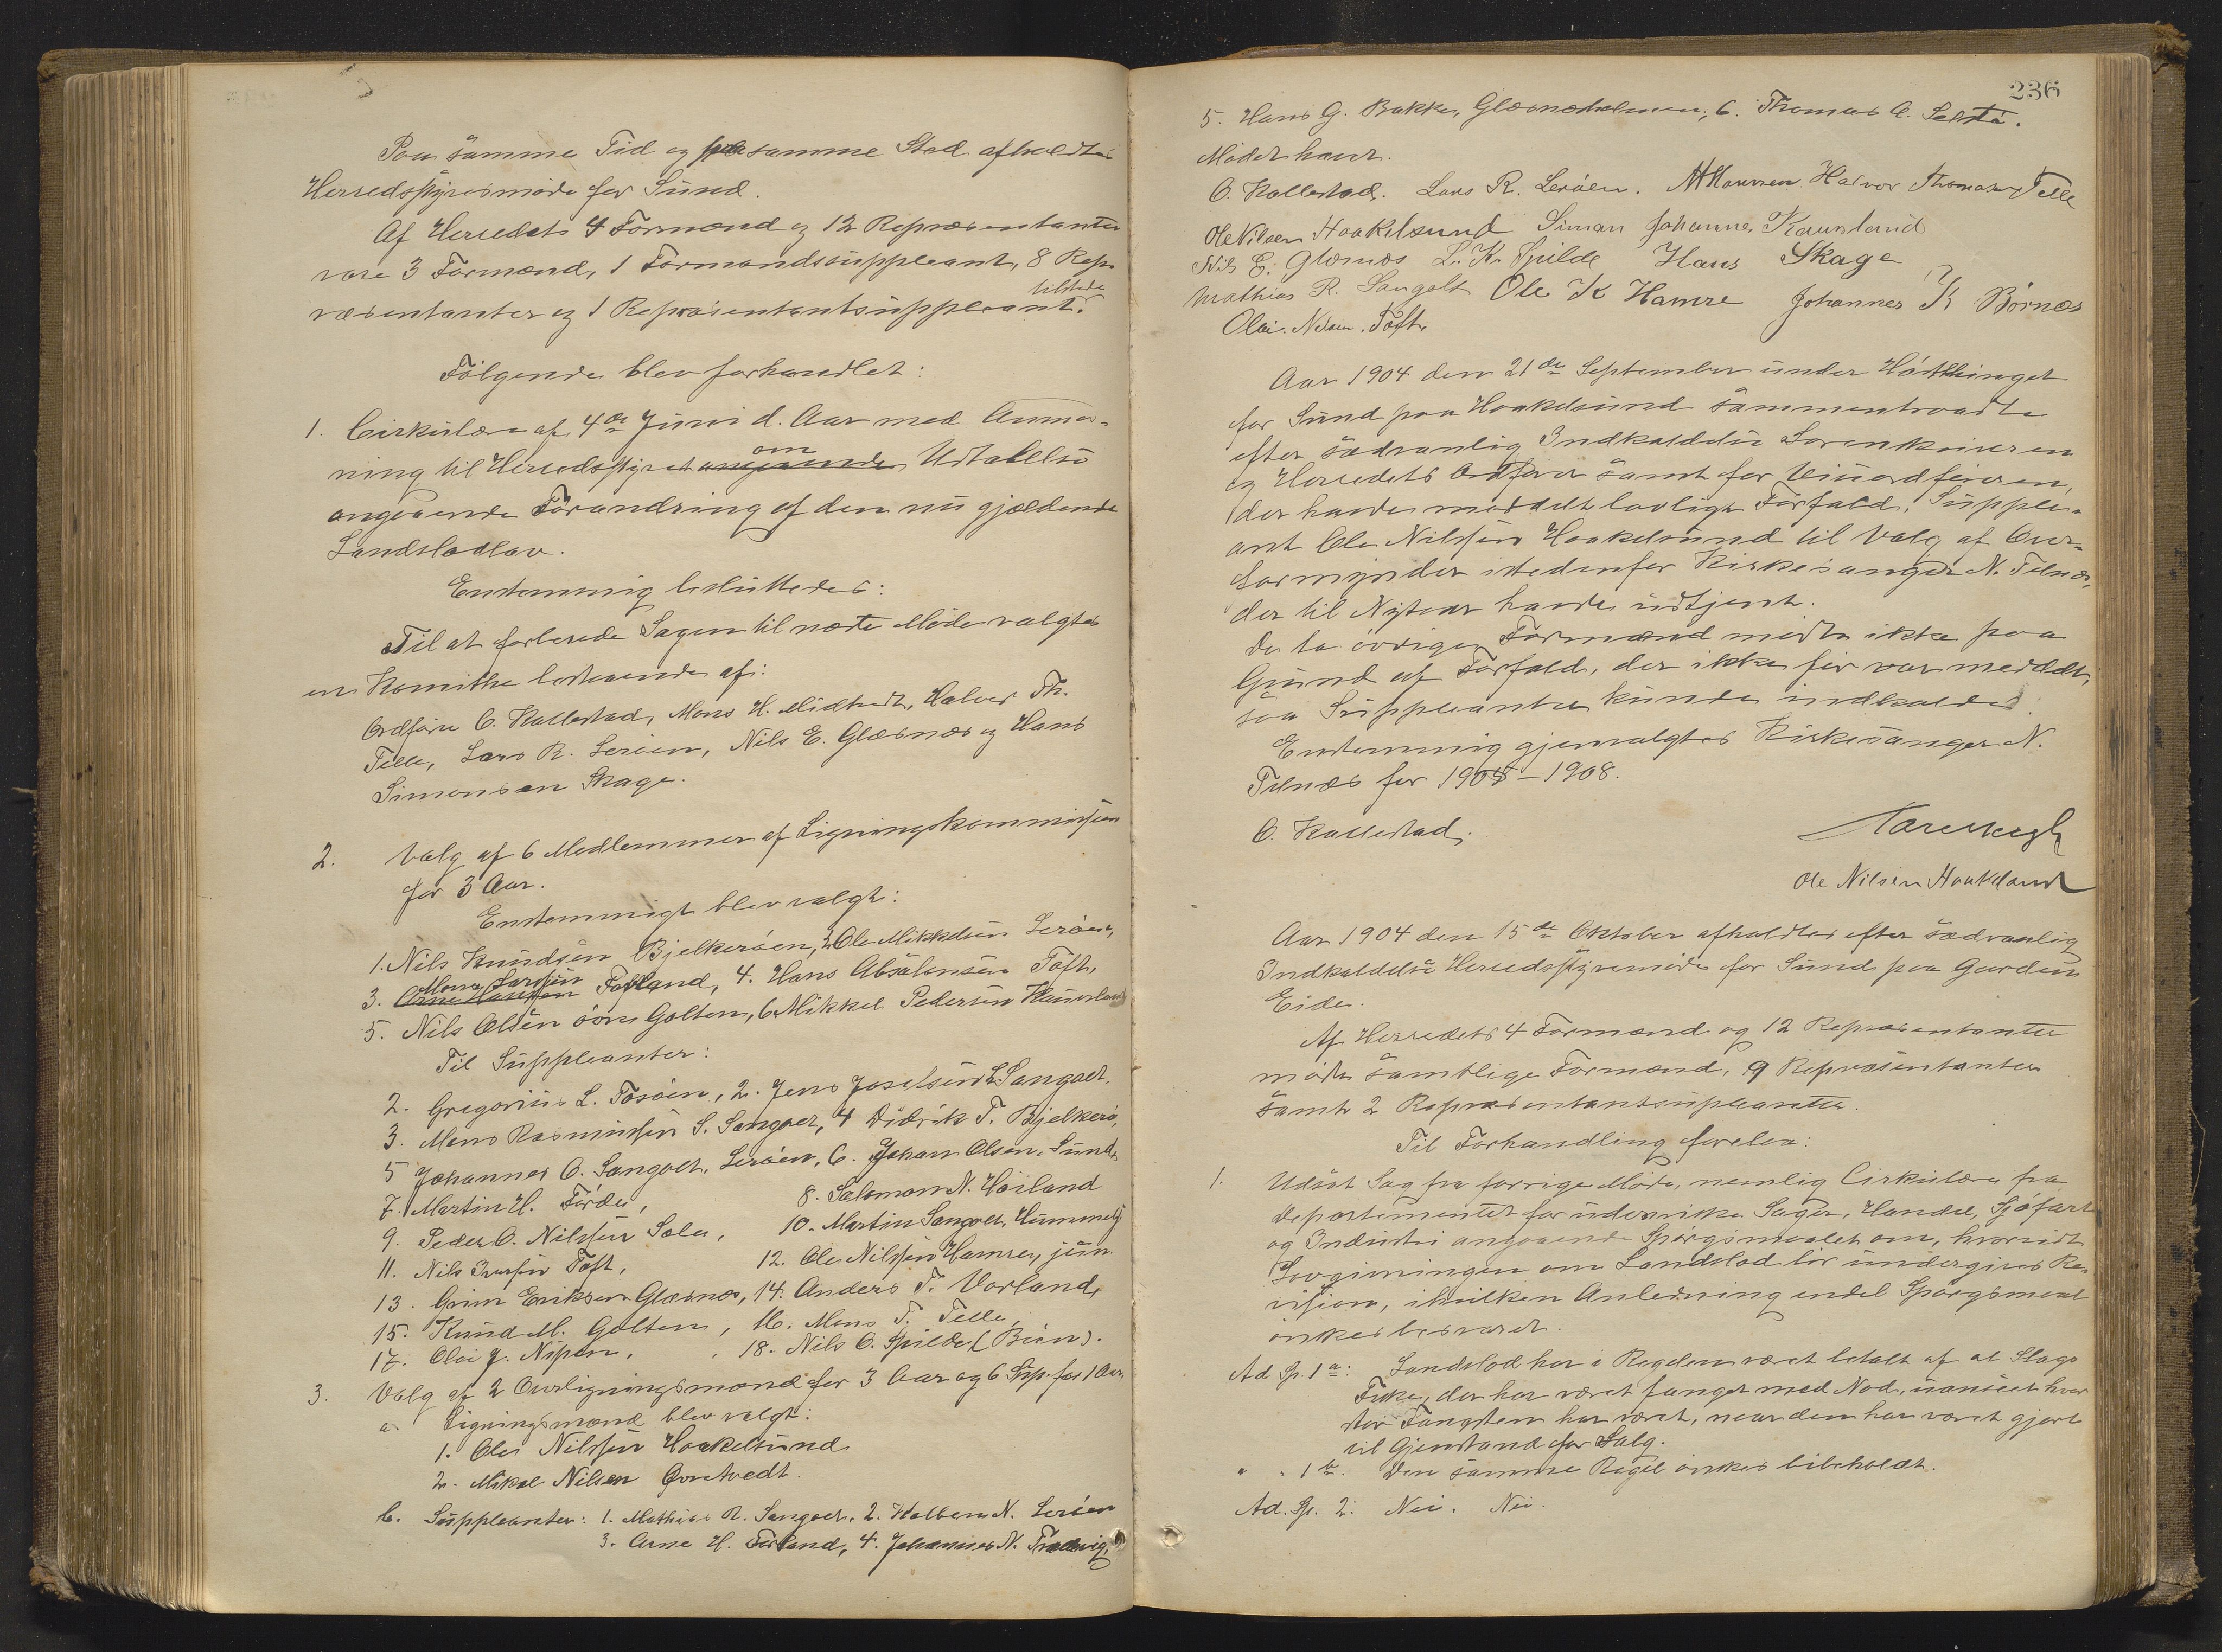 Paa samme Tid og paa samme Sted afholdtes
Herredsstyresmøde for Sund.
Af Herredets 4 Formænd og 12 Repræsentanter
vare 3 Formænd, 1 Formandssuppleant, 8 Rep-
ræsentanter og 1 Repræsentantsuppleant tilstede.
Følgende blev forhandlet:
1. Cirkulære af 4de Juni d. Aar med Anmod-
ning til Herredsstyret angaaende om Udtalelse
angaaende Forandring af den nu gjældende
Landslodlov.
Enstemmig besluttedes:
Til at forberede Sagen til næste Møde valgtes
en Komithe bestaaende af:
Ordfører O. Kallestad, Mons H. Midttvedt, Halvor Th.
Telle, Lars R. Lerøen, Nils E. Glæsnæs og Hans
Simonsen Skage.
2. Valg af 6 Medlemmer af Ligningskommissjon
for 3 Aar.
Enstemmigt blev valgt:
1. Nils Knudsen Bjelkerøen, 2. Ole Mikkelsen Lerøen,
3. Arne Hansen Mons Larssen Forland, 4. Hans Absalonsen Toft,
5. Nils Olsen øvre Golten, 6. Mikkel Pedersen Kausland
Til Suppleanter:
2. Gregorius L. Tosøen, 2. Jens Josefsen L. Sangolt.
3. Mons Rasmussen S. Sangolt, 4 Didrik T. Bjelkerø,
5 Johannes O. Sangolt. Lerøen, 6. Johan Olsen, Sund,
7. Martin H. Førde, 8. Salomon N. Høiland
9. Peder O. Nilssen Sæle, 10. Martin Sangolt, Hummelø
11. Nils Iversen Toft, 12. Ole Nilssen Hamre, jun.
13. Grim Eriksen Glæsnæs, 14. Anders T. Vorland,
15. Knud M. Golten, 16. Mons T. Telle,
17. Oloi J. Nipen, 18. Nils O. Spilde (Bien).
3. Valg af 2 Overligningsmænd for 3 Aar og 6 Sup. for 1 Aar,
a Ligningsmænd blev valgt:
1. Ole Nilssen Haakelsund
2. Mikal Nilsen Øvretvedt.
b. Suppleanter: 1. Mathias R. Sangolt. 2. Halben N. Lerøen
3. Arne H. Forland, 4. Johannes N. Trællevig,
236
5. Hans G. Bakke, Glæsnæsholmen, 6. Thomas A. Selstø.
Mødet hævet.
O. Kallestad. Lars R. Lerøen. Halvor Thomassen Telle
Ole Nilsen Haakelsund Simon Johannes Kausland
Nils E. Glæsnæs L. K. Spilde Hans Skage
Mathias R. Sangolt Ole K Hamre Johannes K Børnæs
Oloi. Nilsen. Toft.
Aar 1904 den 21de September under Høstthinget
for Sund paa Haakelsund sammentraadte
efter sædvanlig Indkaldelse Sorenskriveren
og Herredets Ordfører samt for Viceordføreren,
der havde meddelt lovligt Forfald, Supple-
ant Ole Nilssen Haakelsund til Valg af Over-
formynder istedenfor Kirkesanger N. Telnæs,
der til Nytaar havde udtjent.
De to øvrige Formænd mødte ikke paa
Grund af Forfald, der ikke før var meddelt,
saa Suppleanter kunde indkaldes.
Enstemmig gjenvalgtes Kirkesanger N.
Telnæs for 1905–1908.
O. Kallestad.
Ole Nilsen Haakelsund
Aar 1904 den 15de Oktober afholdtes efter sædvanlig
Indkaldelse Herredsstyremøde for Sund paa Gaarden
Eide.
Af Herredets 4 Formænd og 12 Repræsentanter
mødte samtlige Formænd, 9 Repræsentanter
samt 2 Repræsentantsupleanter.
Til Forhandling forelaa:
1. Udsat Sag fra forrige Møde, nemlig Cirkulære fra
Departementet for udenrikse Sager, Handel, Sjøfart
og Industri angaaende Spørgsmaalet om, hvorvidt
Lovgivningen om Landslod bør undergives Re-
vision, ihvilken Anledning endel Spørgsmaal
ønskes besvaret.
Ad Sp. 1a: Landslod har i Regelen været betalt af al Slags
Fiske, der har været fanget med Nod, uanseet hvor
stor Fangsten har været, naar den har været gjort
til Gjenstand for Salg.
" " 1b. Den samme Regel ønskes bibeholdt.
Ad. Sp. 2: Nei. Nei.